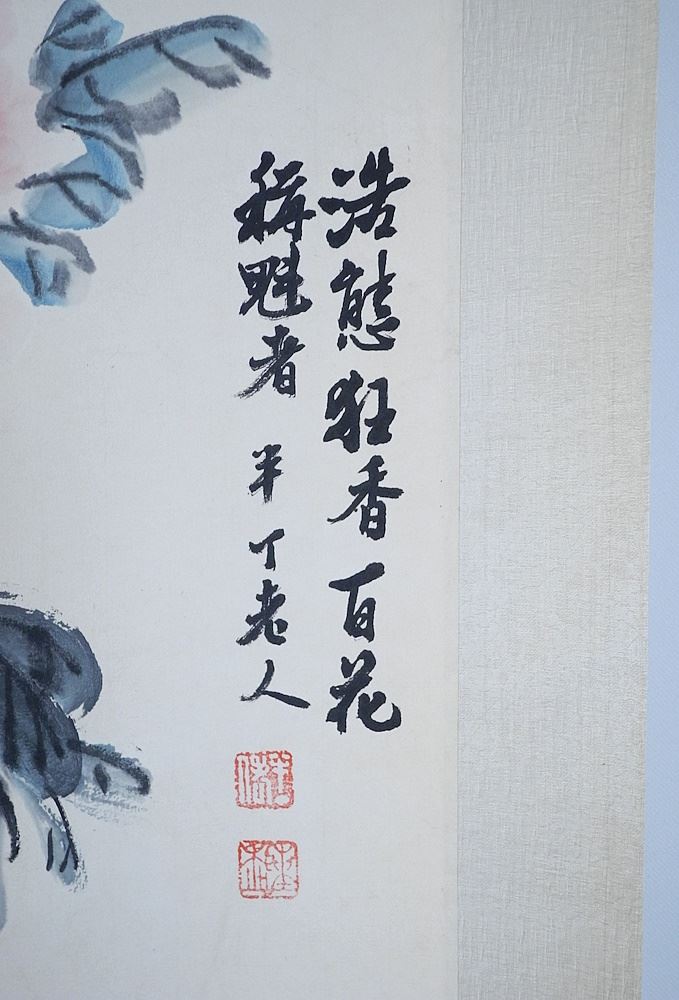 浩態狂香百花
稱魁者 半丁老人